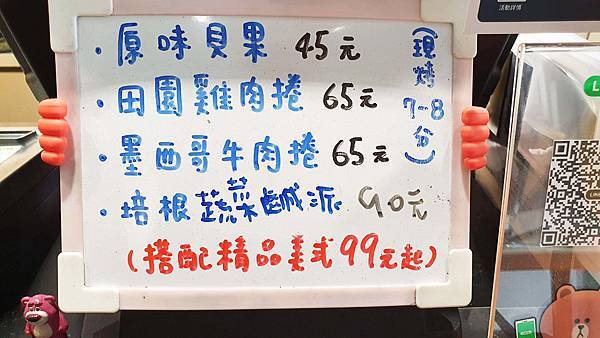 · 原味貝果 45元
· 田園雞肉捲 65元
· 墨西哥牛肉捲 65元
· 培根蔬菜鹹派 90元
(搭配精品美式99元起)
(現烤7-8分)
活動詳情